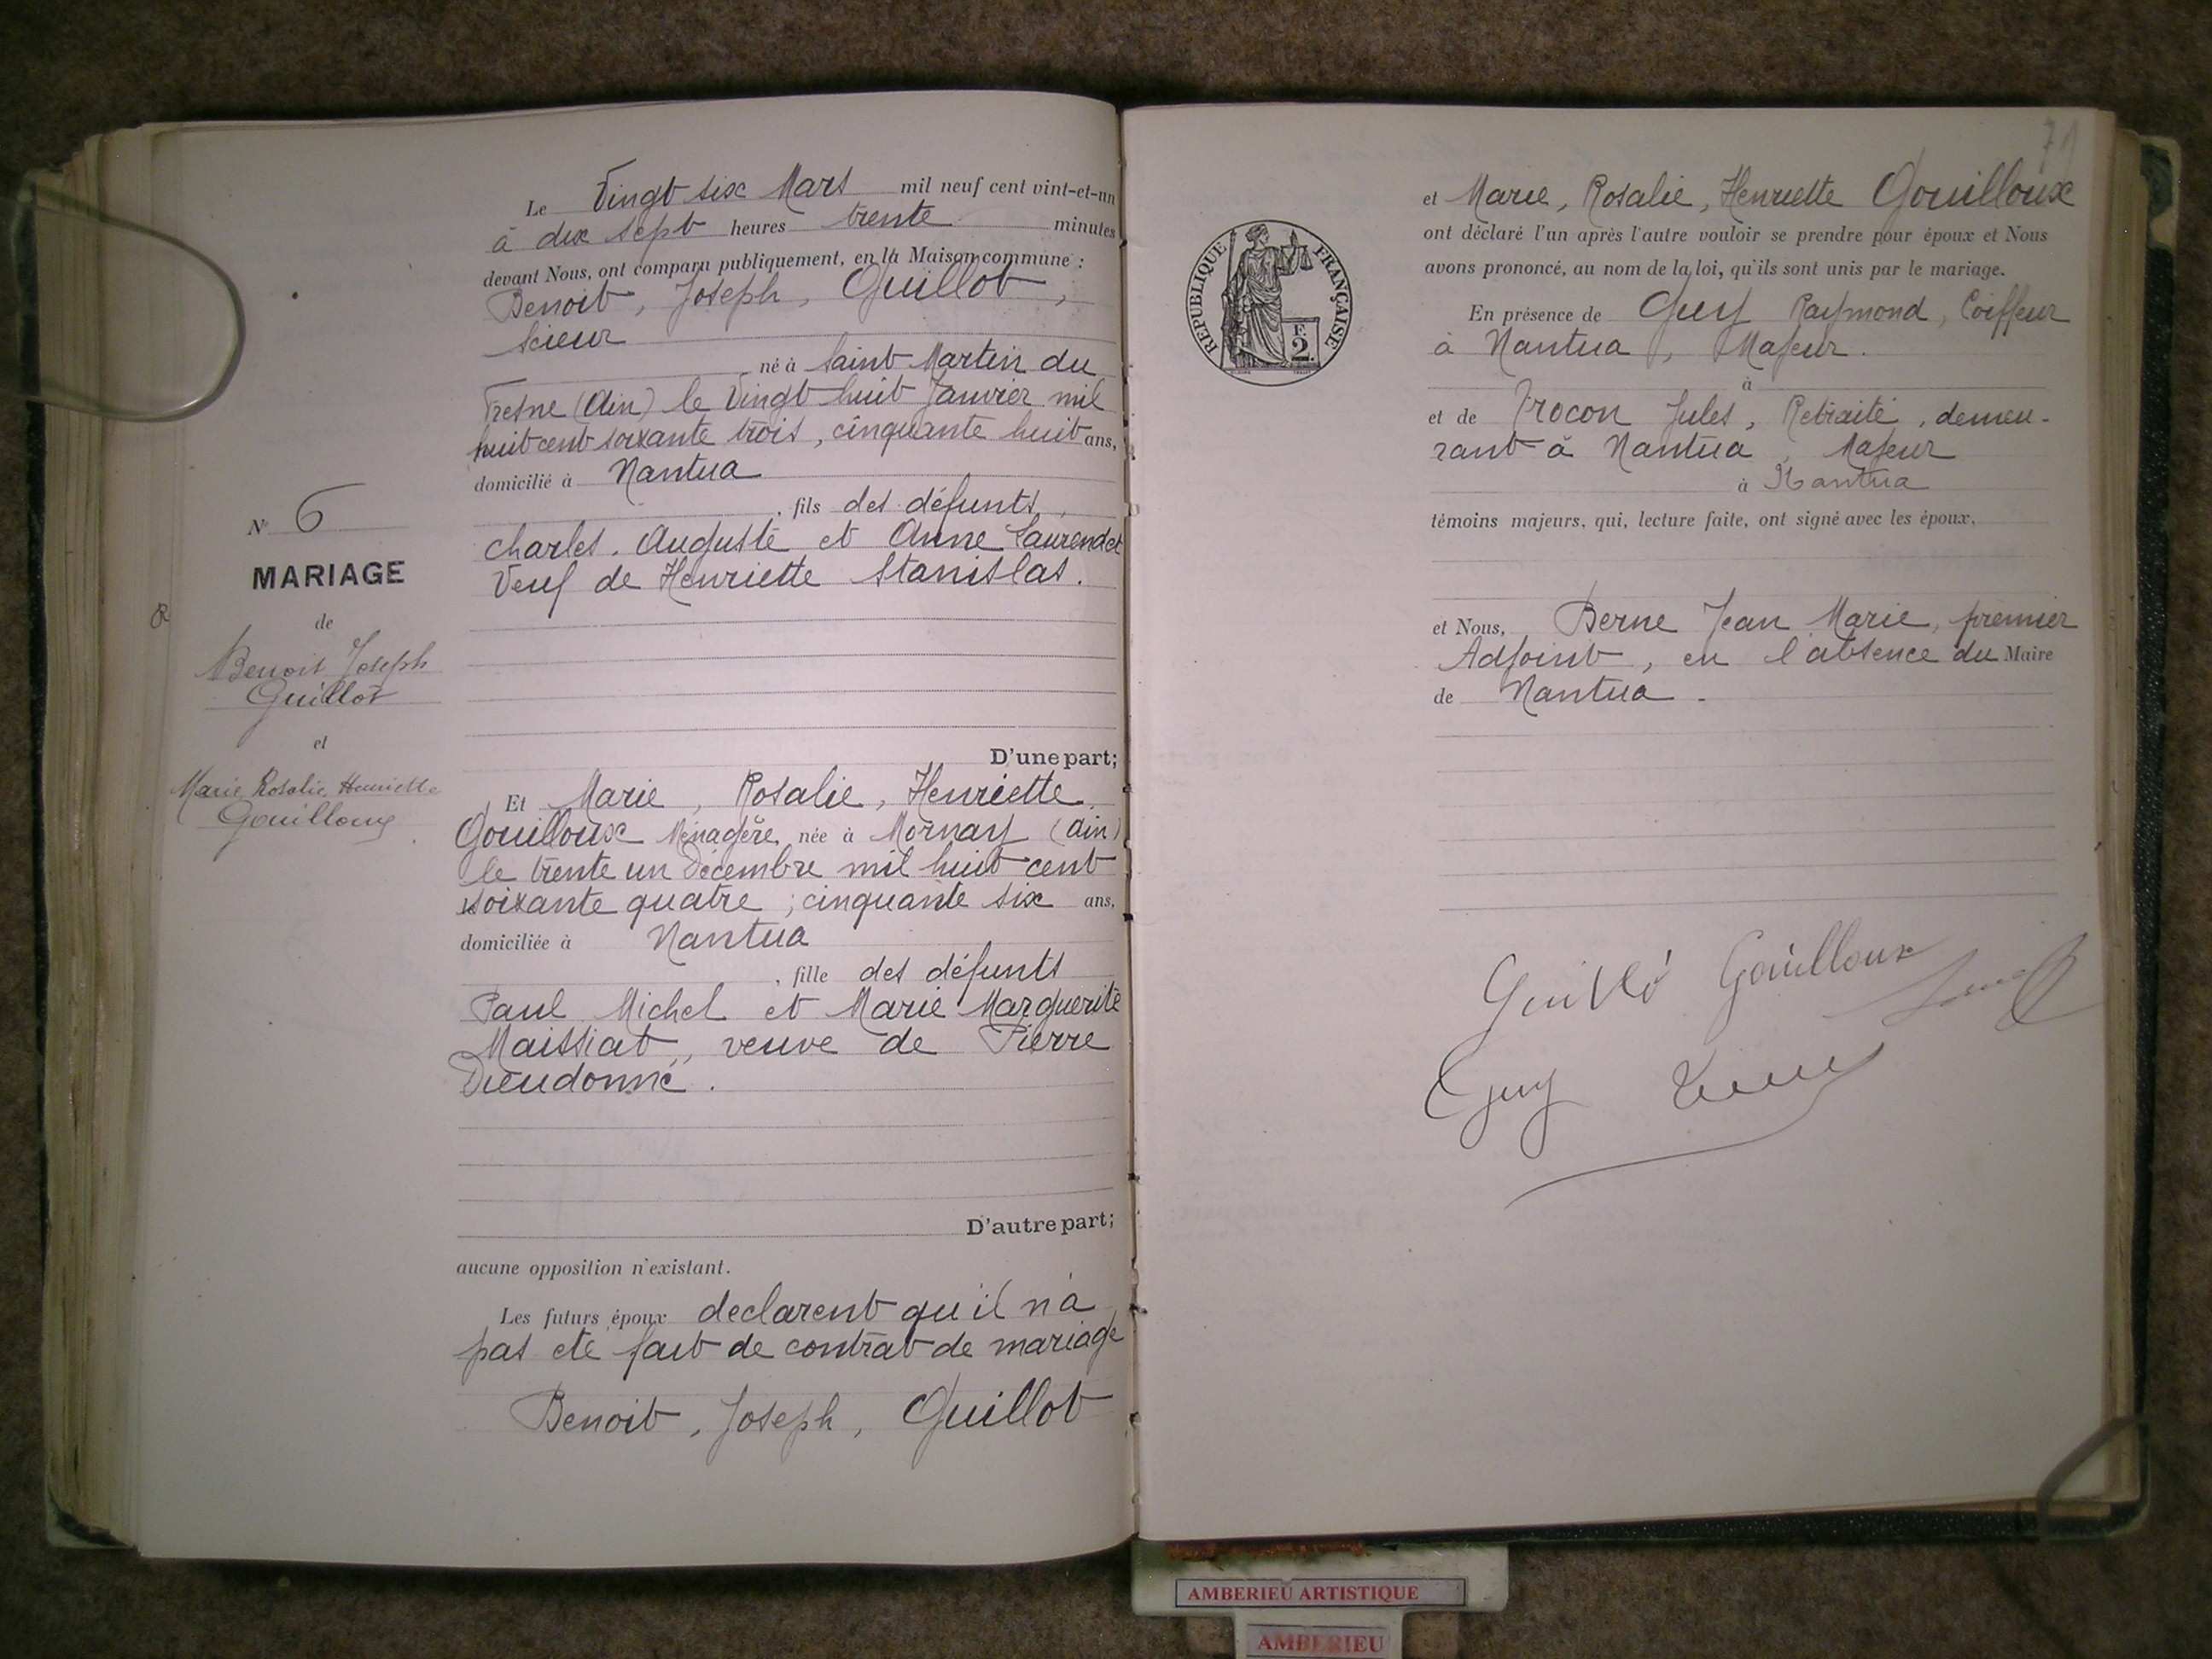 N° 6
MARIAGE
de
Benoit Joseph
Guillot
et
Marie Rosalie Henriette
Gouilloux
Le Vingt six Mars mil neuf cent vint-et-un
à dix sept heures trente minutes
devant Nous, ont comparu publiquement, en la Maison commune :
Benoit, Joseph, Guillot,
Scieur
né à Saint Martin du
Fresne (Ain) le Vingt huit Janvier mil
huit cent soixante trois, cinquante huit ans,
domicilié à Nantua
, fils des défunts,
Charles. Auguste et Anne
Veuf de Henriette Stanislas.
D'une part;
Et Marie, Rosalie, Henriette,
Gouilloux Ménagère, née à Mornay (Ain)
le trente un Décembre mil huit cent
soixante quatre ; cinquante six ans,
domiciliée à Nantua
, fille des défunts
Paul Michel et Marie Marguerite
Maissiat, veuve de Pierre
Dieudonné.
D'autre part;
aucune opposition n'existant.
Les futurs époux declarent qu il n'a
pas eté fait de contrat de mariage
Benoit, Joseph, Guillot
71
et Marie, Rosalie, Henriette Gouilloux
ont déclaré l'un après l'autre vouloir se prendre pour époux et Nous
avons prononcé, au nom de la loi, qu'ils sont unis par le mariage.
RÉPUBLIQUE FRANÇAISE
F.
2
En présence de Guy Raymond, Coiffeur
à Nantua, Majeur.
à
et de Jules, Retraité, demeu-
rant à Nantua, Majeur
à Nantua
témoins majeurs, qui, lecture faite, ont signé avec les époux,
et Nous, Berne Jean Marie, premier
Adjoint, en l'absence du Maire
de Nantua.
Gouilloux
Guy
AMBERIEU ARTISTIQUE
AMBERIEU